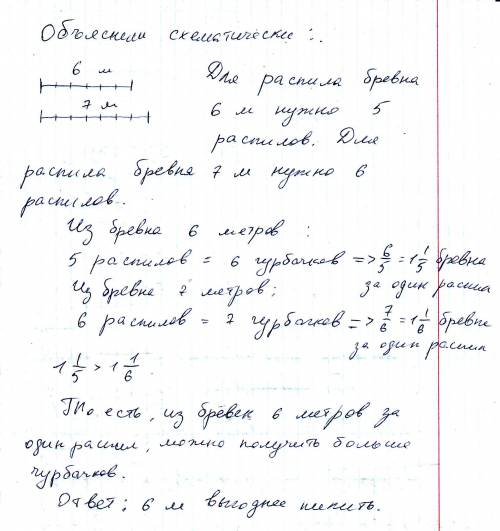 Объяснели схематически:.
6 м
7 м
Для распила бревна
6 м нужно 5
распилов. Для
распила бревна 7 м нужно 6
распилов.
Из бревна 6 метров :
5 распилов = 6 чурбачков => 6/5 = 1 1/5 бревна
за один распил
Из бревна 7 метров;
6 распилов = 7 чурбачков => 7/6 = 1 1/6 бревна
за один распил
1 1/5 > 1 1/6 .
То есть, из бревек 6 метров за
один распил, можно получить больше
чурбачков.
Ответ; 6 м выгоднее пилить.